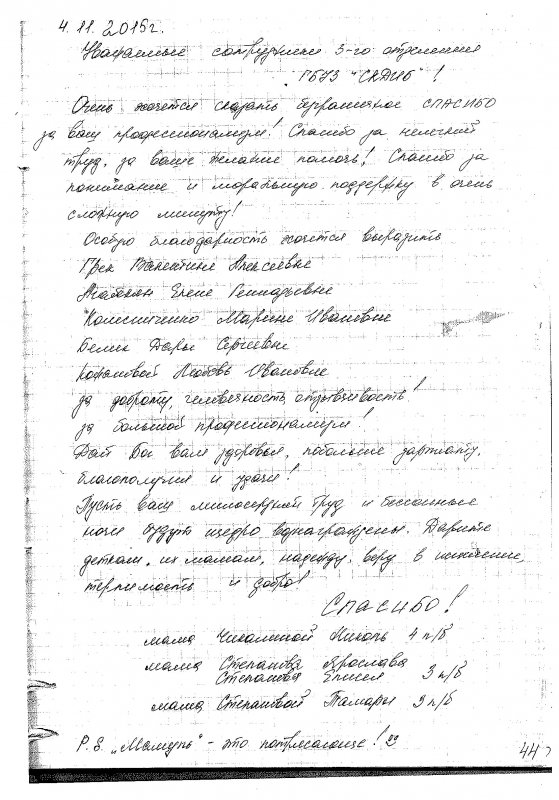 4.11.2015г.
Уважаемые сотрудники 3-го отделения
ГБУЗ "СКДИБ"!
Очень хочется сказать безграничное СПАСИБО
за ваш профессионализм! Спасибо за нелегкий
труд, за ваше желание помочь! Спасибо за
понимание и моральную поддержку в очень
сложную минуту!
Особую благодарность хочется выразить
Грек Валентине Алексеевне
Агабекян Елене Геннадьевне
Колесниченко Марине Ивановне
Белик Дарье Сергеевне
Кожановой Любовь Ивановне
за доброту, человечность, отзывчивость!
за большой профессионализм!
Дай Бог вам здоровья, побольше зарплату,
благополучия и удачи!
Пусть ваш милосердный труд и бессонные
ночи будут щедро вознаграждены. Дарите
деткам, их мамам, надежду, веру в исцеление,
терпимость и добро!
Спасибо!
мама Чикалиной Николь 4 п/б
мама Степанова Ярослава
Степанова Елисея 3 п/б
мама Степановой Тамары 3 п/б
P.S. „Мамуль" - это потрясающе!
44